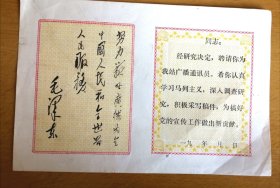 努力办好广播，为全
中国人民和全世界
人民服务
毛泽东
同志：
经研究决定，聘请你为
我站广播通讯员。希你认真
学习马列主义，深入调查研
究，积极采写稿件，为搞好
党的宣传工作做出新贡献。
一九 年 月 日